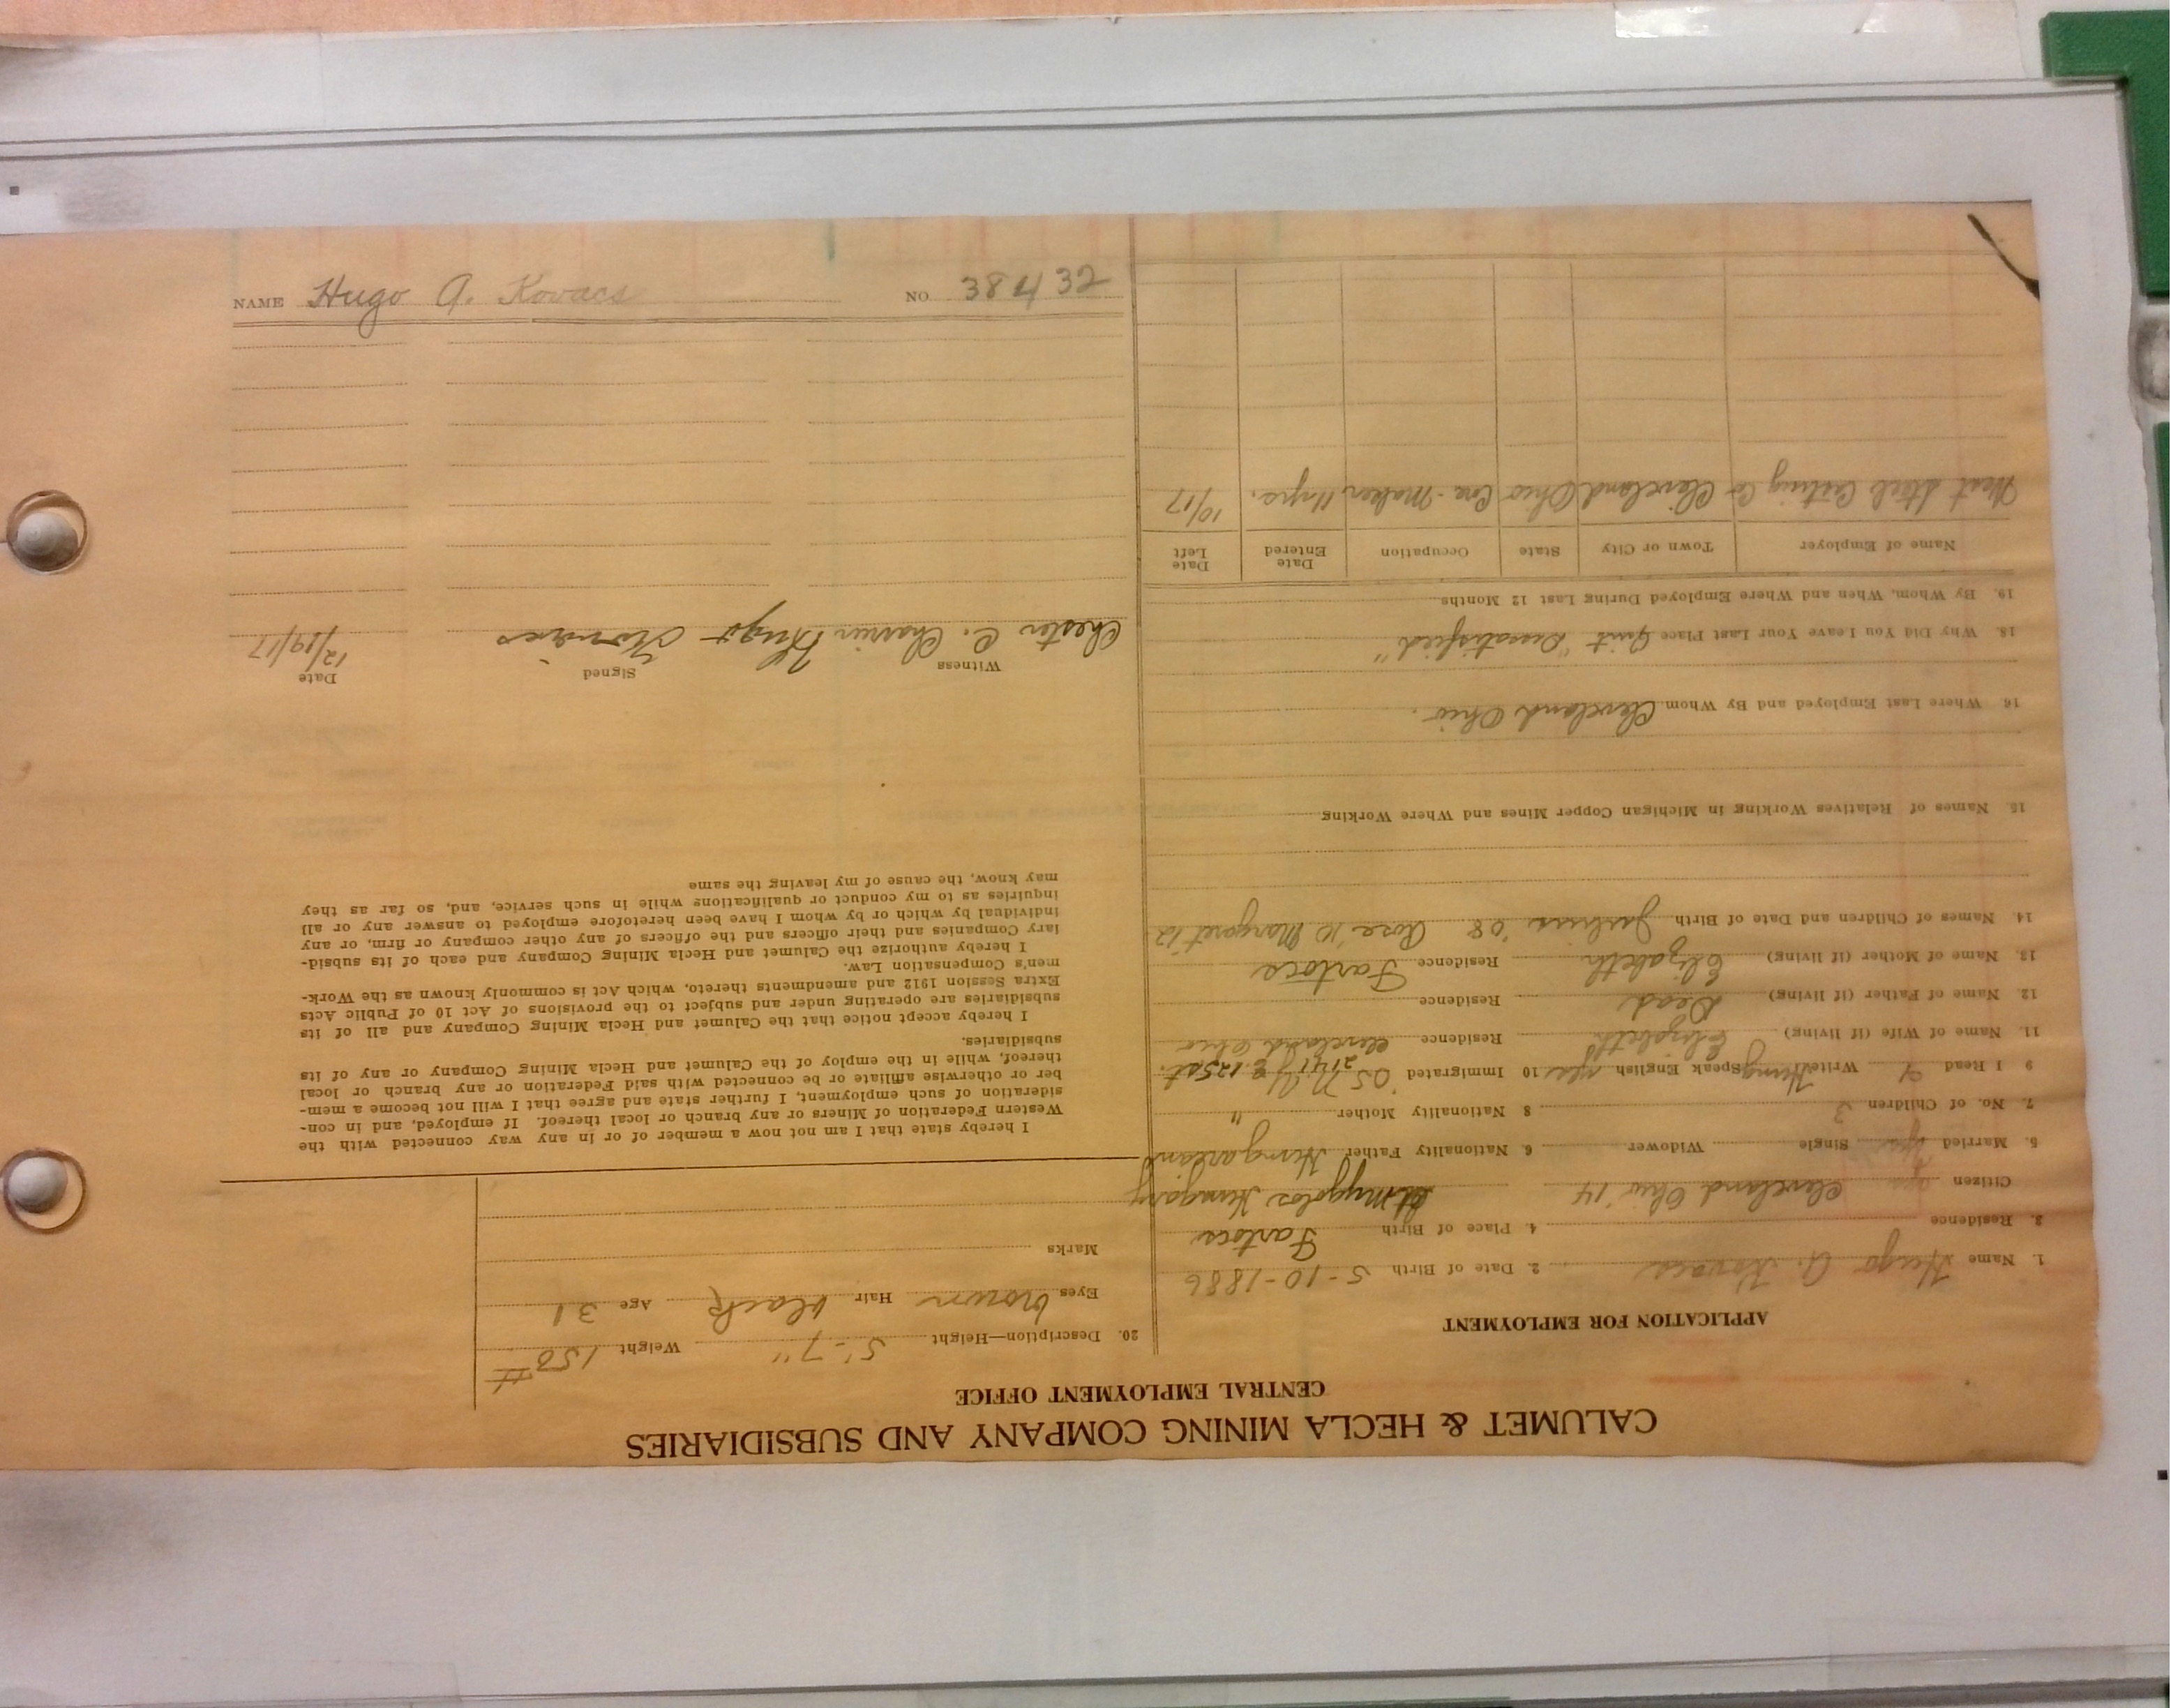 CALUMET & HECLA MINING COMPANY AND SUBSIDIARIES
CENTRAL EMPLOYMENT OFFICE
APPLICATION FOR EMPLOYMENT
1. Name Hugo A. Kovacs 2. Date of Birth 5-10-1886
3. Residence 4. Place of Birth Fartocs
Citizen yes Cleveland Ohio '14 Hungary
5. Married yes Single Widower 6. Nationality Father Hungarian
7. No. of Children 3 8 Nationality Mother "
9 I Read Write Hung Speak English yes 10 Immigrated '05 N.Y.
2141 E. 125 st.
11. Name of Wife (if living) Elizabeth Residence Cleveland Ohio
12. Name of Father (if living) Dead Residence
13. Name of Mother (if living) Elizabeth Residence Fartocs
14. Names of Children and Date of Birth Julius '08 Rose '10 Margaret 12
15. Names of Relatives Working in Michigan Copper Mines and Where Working
16. Where Last Employed and By Whom Cleveland Ohio.
18. Why Did You Leave Your Last Place Quit "Dissatisfied"
19. By Whom, When and Where Employed During Last 12 Months
Name of Employer Town or City State Occupation Date Entered Date Left
West Steel Casting Co Cleveland Ohio Core-Maker 11 yrs. 10/17
20. Description—Height 5'-7" Weight 150#
Eyes brown Hair black Age 31
Marks
I hereby state that I am not now a member of or in any way connected with the
Western Federation of Miners or any branch or local thereof. If employed, and in con-
sideration of such employment, I further state and agree that I will not become a mem-
ber or otherwise affiliate or be connected with said Federation or any branch or local
thereof, while in the employ of the Calumet and Hecla Mining Company or any of its
subsidiaries.
I hereby accept notice that the Calumet and Hecla Mining Company and all of its
subsidiaries are operating under and subject to the provisions of Act 10 of Public Acts
Extra Session 1912 and amendments thereto, which Act is commonly known as the Work-
men's Compensation Law.
I hereby authorize the Calumet and Hecla Mining Company and each of its subsid-
iary Companies and their officers and the officers of any other company or firm, or any
individual by which or by whom I have been heretofore employed to answer any or all
inquiries as to my conduct or qualifications while in such service, and, so far as they
may know, the cause of my leaving the same
Date Signed Witness
12/19/17 Hugo Chester C.
NAME Hugo A. Kovacs NO. 38432